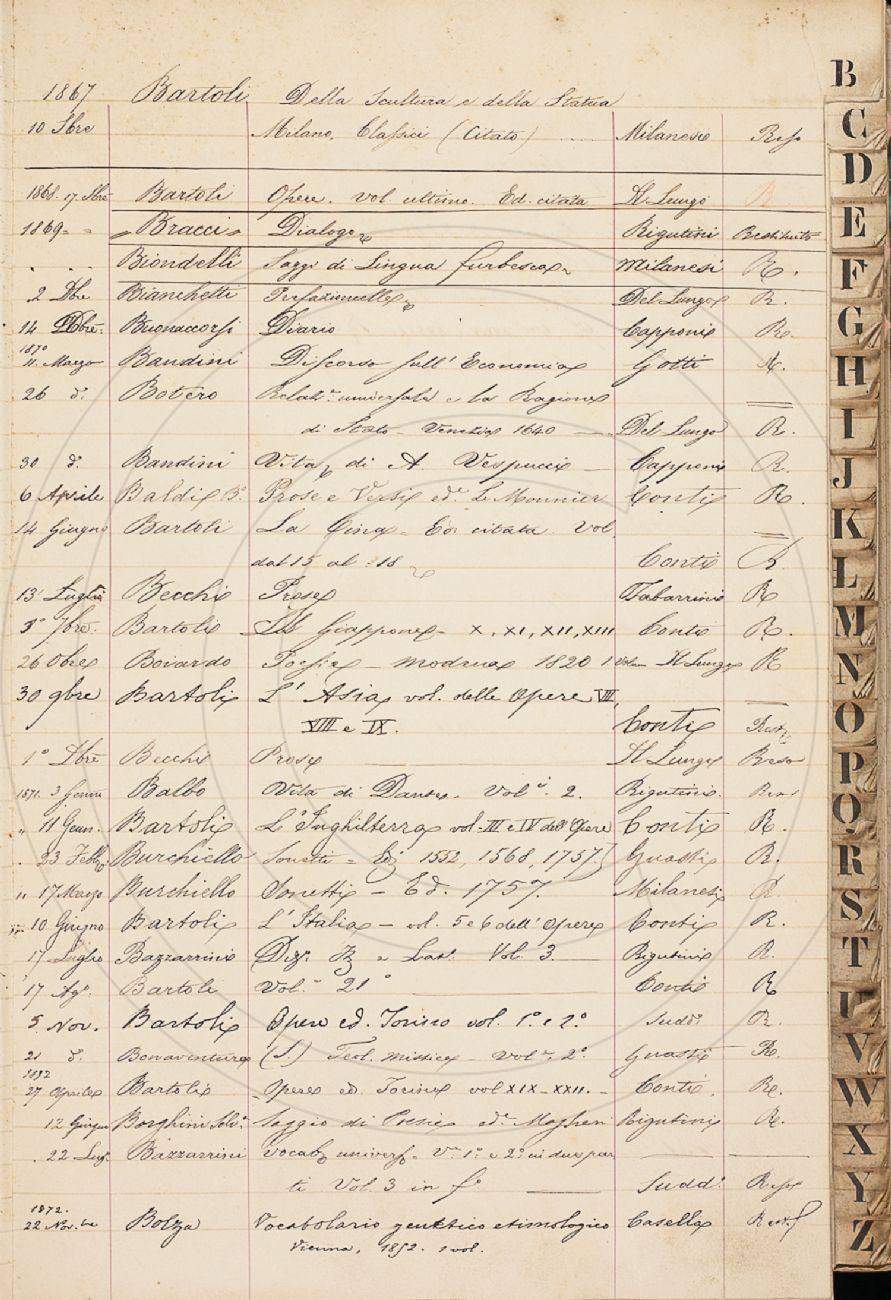 1867 Bartoli Della Scultura e della Statua
10 Sbre Milano, Classici (Citato) Milanesi Resp
1868. 17 Sbre Bartoli Opere. Vol ultimo. Ed. citata Il Lungo R
1869 " " Bracci Dialogo Rigutini Restituito
" " Biondelli Saggi di Lingua furbesca Milanesi R.
2 Dbre Bianchetti Del Lungo R.
14 Dbre. Buonaccorsi Diario Capponi R.
1870
11 Marzo Bandini Discorso sull' Economia Gotti R.
26 d.° Botero Relaz.ni universali e la Ragione
di Stato - Venezia 1640 Del Lungo R.
30 d.° Bandini Vita di A. Vespucci Capponi R.
6 Aprile Baldi B.° Prose e Versi ed.e Le Monnier Conti R.
14 Giugno Bartoli La Cina - Ed. citata. Vol.
dal 15 al 18 Conti R.
13 Luglio Becchi Prose Tabarrini R
3° 7bre. Bartoli Il Giappone - X, XI, XII, XIII Conti R.
26 Obre Boiardo Poesie - Modena 1820 1 Volume Il Lungo R
30 9bre Bartoli L'Asia, vol. delle Opere VII,
VIII e IX. Conti Rest.
1° Dbre Becchi Prose Il Lungo Reso
1871. 3 Genn Balbo Vita di Dante. Vol.i 2. Rigutini. Reso
" 11 Genn. Bartoli L'Inghilterra vol. III e IV dell'Opere Conti R.
" 23 Febb.° Burchiello Sonetti = Ediz 1552, 1568, 1757. Guasti R.
" 17 Marzo Burchiello Sonetti - Ed. 1757. Milanesi R
10 Giugno Bartoli L'Italia - vol. 5 e 6 dell'Opere Conti R.
17 Luglio Bazzarini Diz.° It e Lat. Vol. 3. Rigutini R.
17 Ag.° Bartoli Vol. 21° Conti R
5 Nov. Bartoli Opere ed. Torino vol. 1.° e 2.° Sudd.° R.
21 d.° Bonaventura (S.) Teol. mistica - Vol. 2.° Guasti R.
1872
27 Aprile Bartoli Opere ed. Torino vol XIX - XXII. - Conti. R.
12 Giugno Borghini Selv.° Saggio di Poesie ed.e Magheri Rigutini R.
22 Lug. Bazzarini Vocab univers.e V.i 1° e 2° in due par
ti Vol. 3 in f.° Sudd.° Resp
1872.
22 Nov.bre Bolza Vocabolario genetico etimologico Casella Rest.
Vienna, 1852. 1 vol.
B
C
D
E
F
G
H
I
J
K
L
M
N
O
P
Q
R
S
T
U
V
W
X
Y
Z